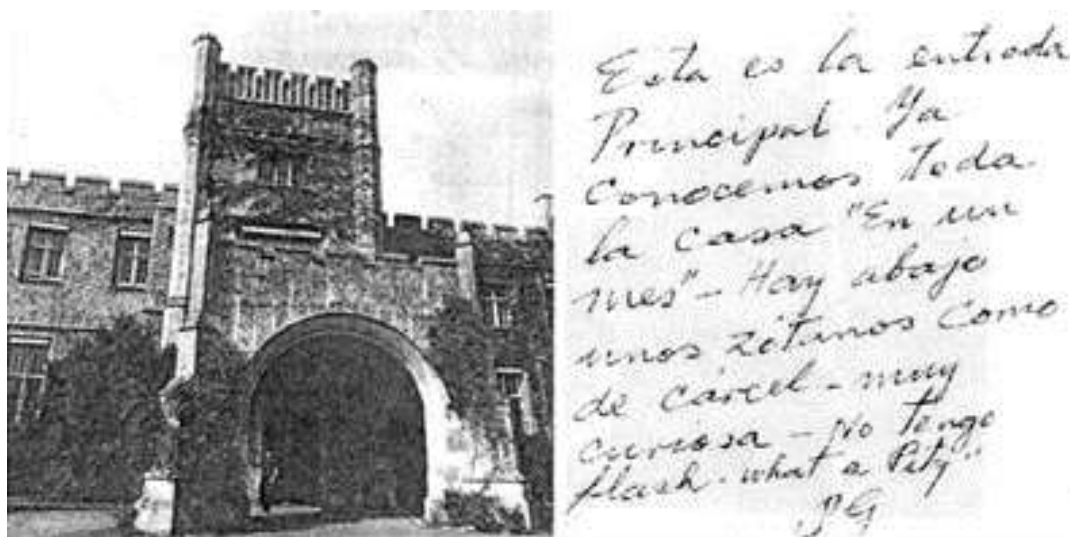 Esta es la entrada
Principal. Ya
conocemos toda
la casa "En un
mes" - Hay abajo
unos zótanos como
de cárcel - muy
curiosa - No tengo
flash. what a Pity"
JG